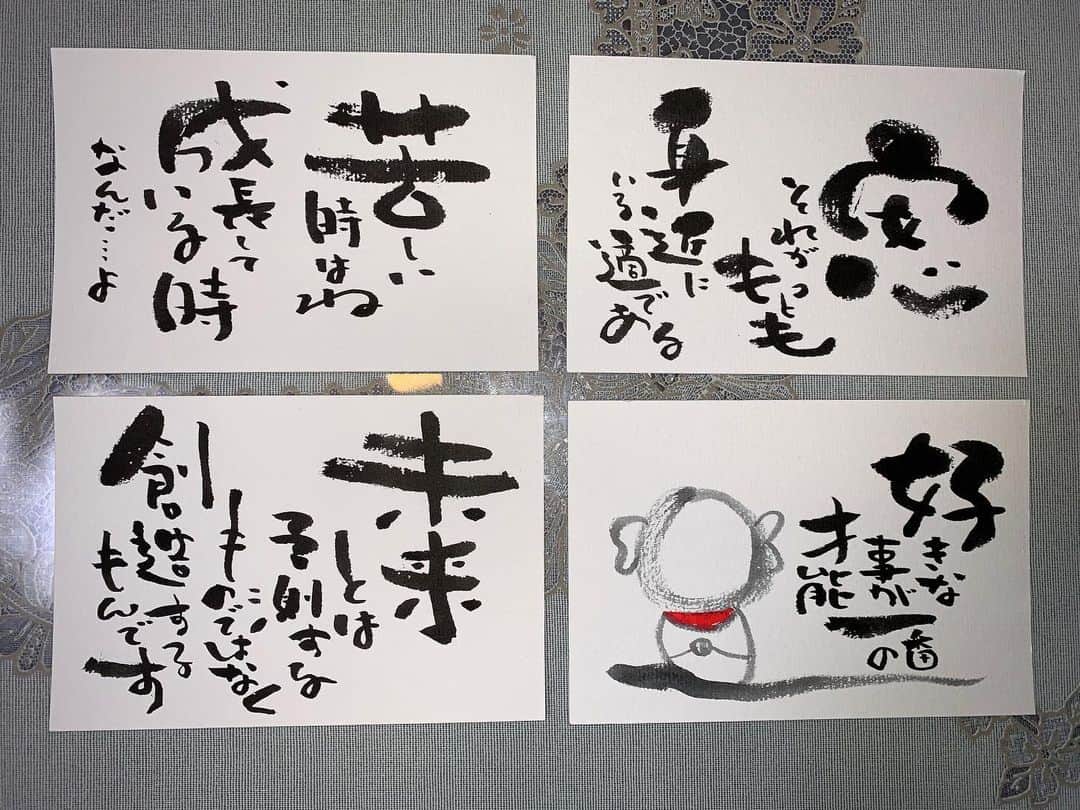 苦しい
時はね
成長して
いる時
なんだ…よ
安心
それが
もっとも
身近に
いる適で
ある
未来
とは
予測する
ものではなく
創造する
もんです
好きな
事が
一番の
才能